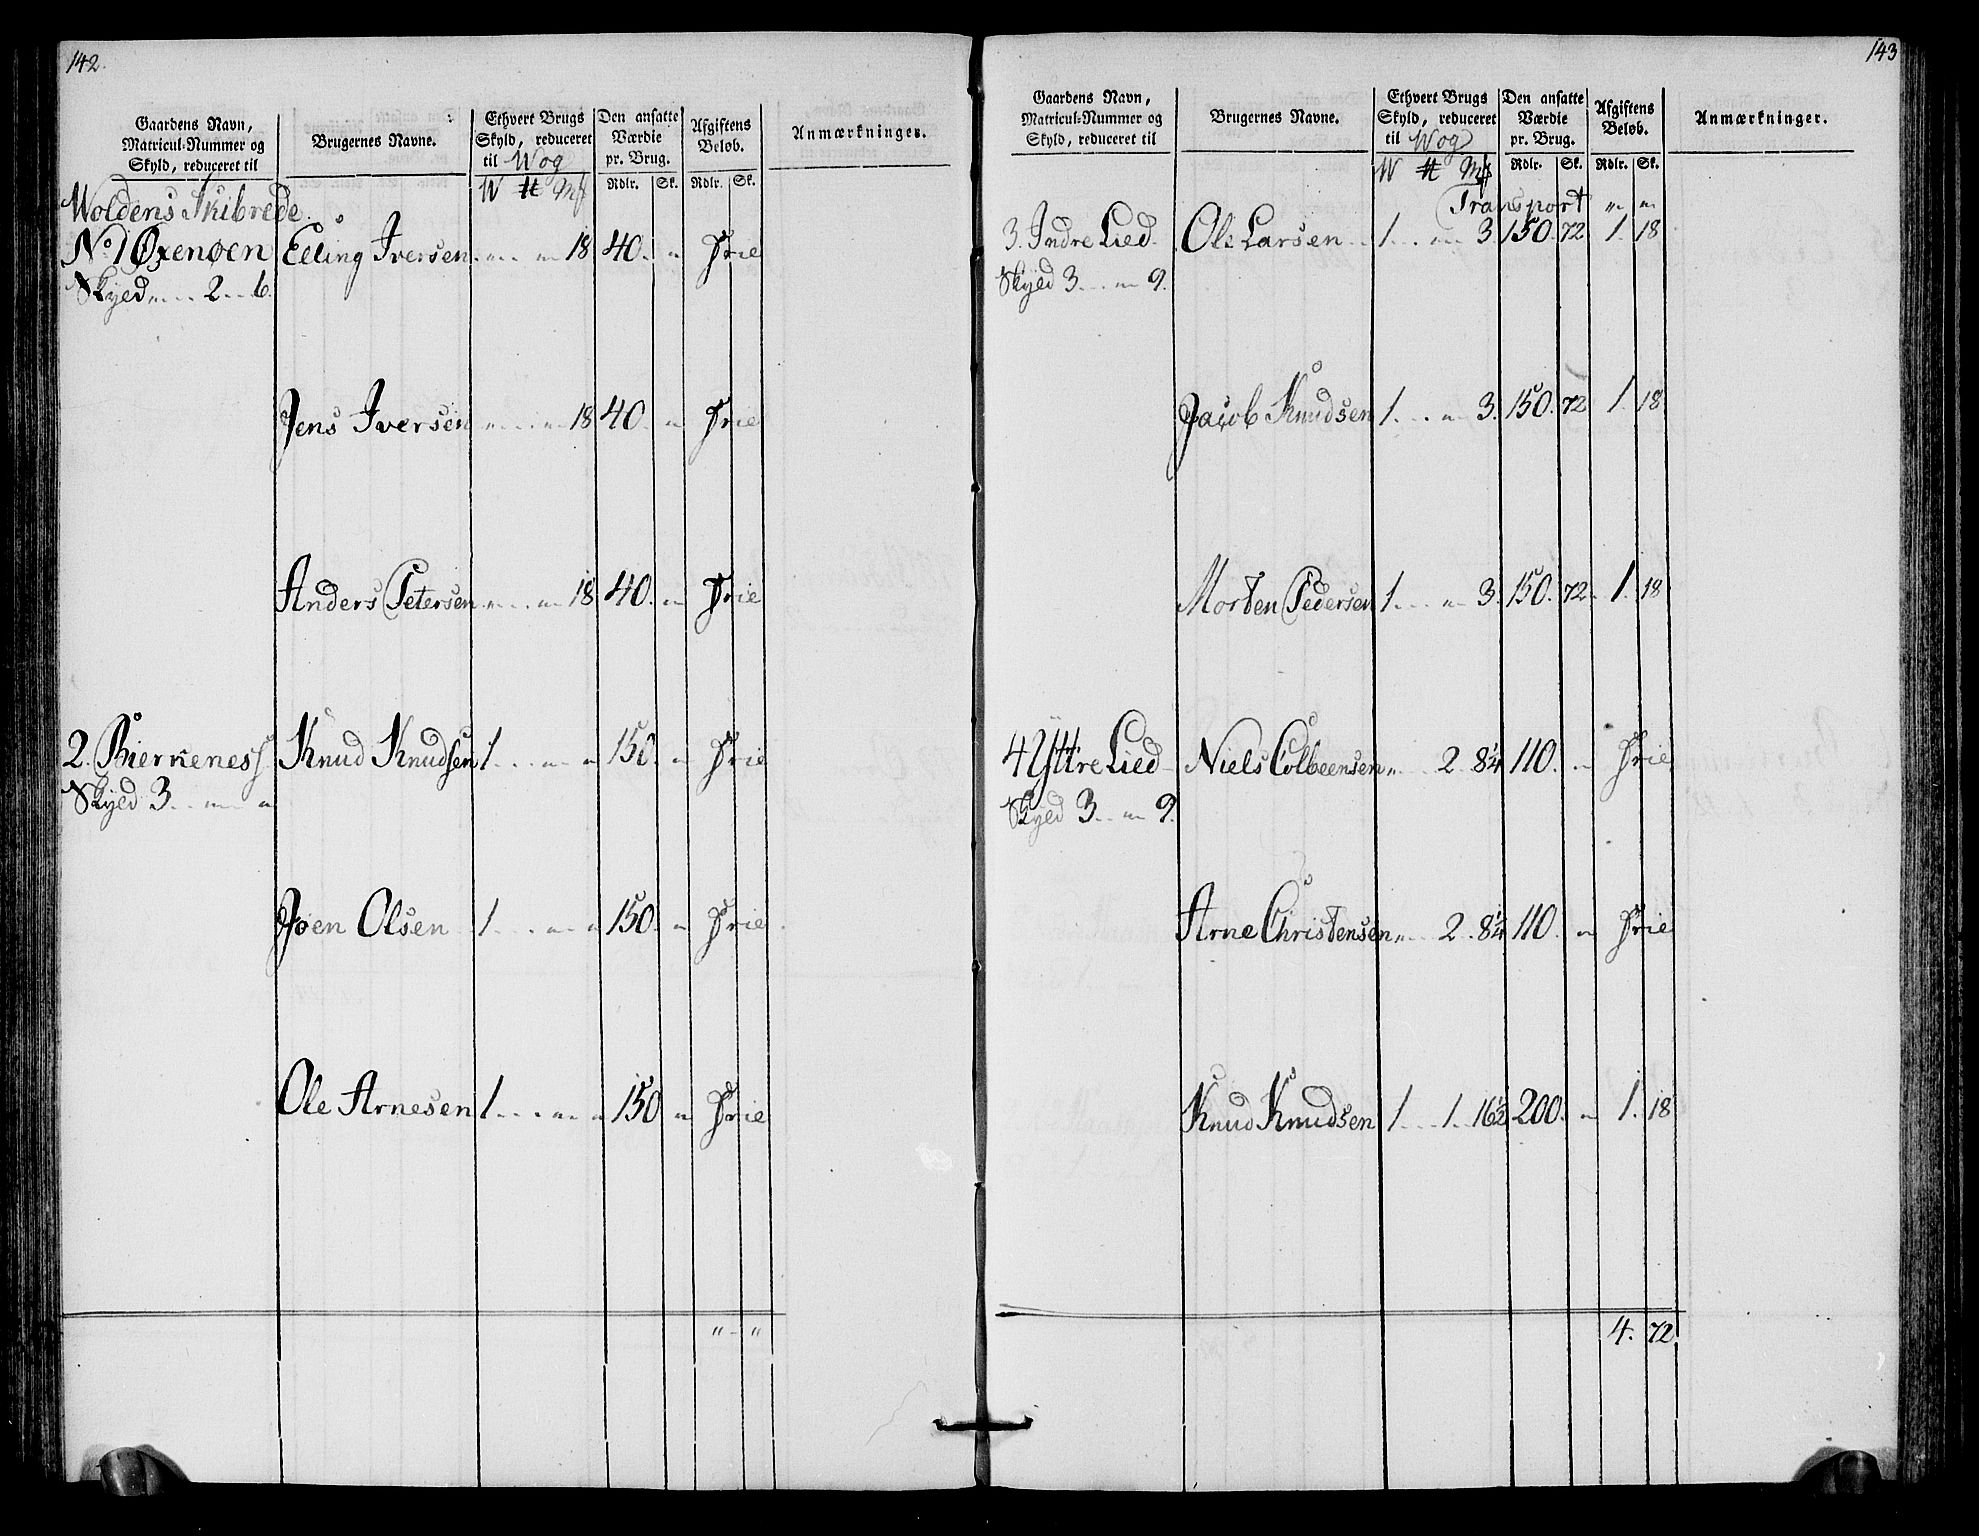 142.
Gaardens Navn, Matricul-Nummer og Skyld, reduceret til | Brugernes Navne. | Ethvert Brugs Skyld, reduceret til Wog | Den ansatte Værdie pr. Brug. | Afgiftens Beløb. | Anmærkninger.
W ℔ Mk | Rdlr. Sk. | Rdlr. Sk.
Woldens Skibrede.
No. 1 Øxenøen Elling Iversen " " 18 40. " Frie
Skyld " 2 6.
Jens Iversen " " 18 40. " Frie
Anders Petersen " " 18 40. " Frie
2. Biernenes Knud Knudsen 1 " " 150. " Frie
Skyld 3 " "
Joen Olsen 1 " " 150. " Frie
Ole Arnesen 1 " " 150 " Frie
" - "
143
Gaardens Navn, Matricul-Nummer og Skyld, reduceret til | Brugernes Navne. | Ethvert Brugs Skyld, reduceret til Wog | Den ansatte Værdie pr. Brug. | Afgiftens Beløb. | Anmærkninger.
W ℔ Mk | Rdlr. Sk. | Rdlr. Sk.
Transport " "
3. Indre Lied Ole Larsen 1 " 3. 150. 72 1. 18
Skyld 3 " 9.
Jacob Knudsen 1 " 3. 150. 72 1. 18
Morten Pedersen 1 " 3. 150. 72 1. 18
4 Yttre Lied Niels Colbeensen " 2 8¼ 110. " Frie
Skyld 3 " 9.
Arne Christensen " 2 8¼ 110. " Frie
Knud Knudsen 1 1 16½ 200. " 1. 18
4. 72